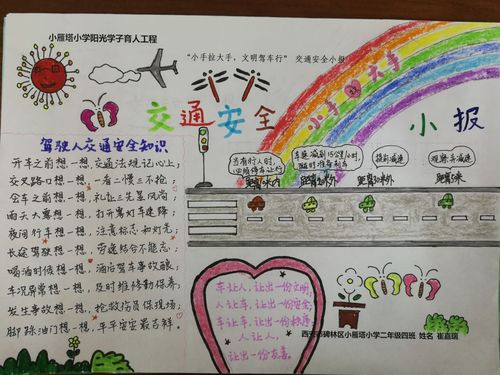 小雁塔小学阳光学子育人工程
“小手拉大手，文明驾车行” 交通安全小报
小手拉大手
交通安全
小报
驾驶人交通安全知识
开车之前想一想，交通法规记心上；
交叉路口想一想，一看二慢三不抢；
会车之前想一想，礼让三先显风尚；
雨天大雾想一想，打开雾灯车速降；
夜间行车想一想，注意标志和灯光；
长途驾驶想一想，劳逸结合不能忘；
喝酒时候想一想，酒后驾车事故酿；
车况异常想一想，及时维修勤保养；
发生事故想一想，抢救伤员保现场；
脚踩油门想一想，平平安安最吉祥。
当有行人时，
必须停车让行
车速减到15公里/小时，
随时准备刹车
提前减速
观察、车减速
车让人，让出一份文明；
人让车，让出一份安全；
车让车，让出一份秩序；
人让人，
让出一份友善。
西安市碑林区小雁塔小学二年级四班 姓名 崔嘉瑞